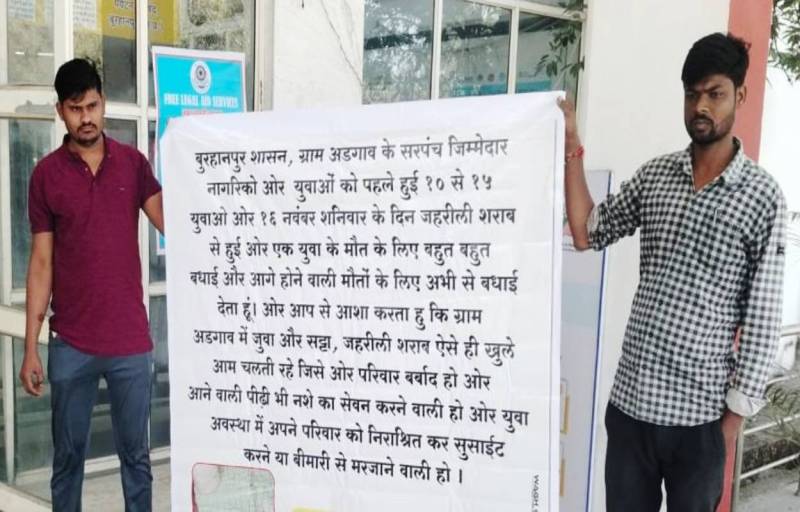 बुरहानपुर
FREE LEGAL AID SERVICES
बुरहानपुर शासन, ग्राम अडगाव के सरपंच जिम्मेदार
नागरिको ओर युवाओं को पहले हुई १० से १५
युवाओ ओर १६ नवंबर शनिवार के दिन जहरीली शराब
से हुई ओर एक युवा के मौत के लिए बहुत बहुत
बधाई और आगे होने वाली मौतों के लिए अभी से बधाई
देता हूं। ओर आप से आशा करता हु कि ग्राम
अडगाव में जुवा और सट्टा, जहरीली शराब ऐसे ही खुले
आम चलती रहे जिसे ओर परिवार बर्बाद हो ओर
आने वाली पीढ़ी भी नशे का सेवन करने वाली हो ओर युवा
अवस्था में अपने परिवार को निराश्रित कर सुसाईट
करने या बीमारी से मरजाने वाली हो ।